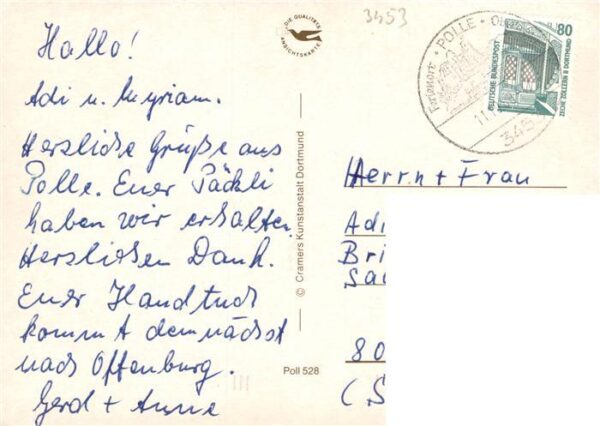 Hallo!
Adi u. Myriam.
Herzliche Grüße aus
Polle. Euer Päckli
haben wir erhalten.
Herzlichen Dank.
Euer Handtuch
kommt demnächst
nach Offenburg.
Gerd + Anne
DIE QUALITÄTS
ANSICHTSKARTE
© Cramers Kunstanstalt Dortmund
Poll 528
3453
POLLE
Ferienort
11
345
80
DEUTSCHE BUNDESPOST
ZECHE ZOLLERN II DORTMUND
Herrn + Frau
Adi
Bri
80
(S